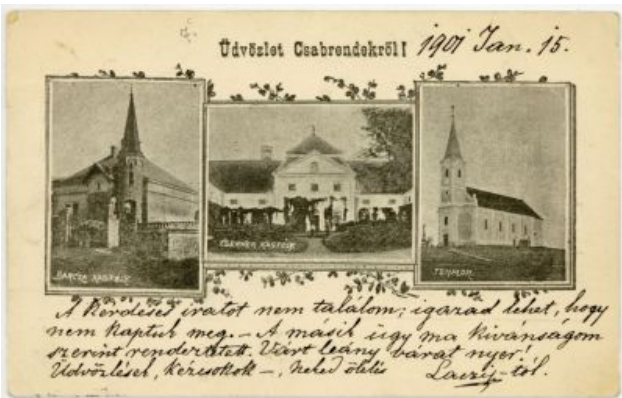 Üdvözlet Csabrendekről! 1901 Jan. 15.
KASTÉLY
KASTÉLY
TEMPLOM
A kérdéses iratot nem találom; igazad lehet, hogy
nem kaptuk meg. - A másik ügy ma kívánságom
szerint rendeztetett. Várt leány várat nyer!
Üdvözlések, kézcsókok -, neked ölelés
Laczi-tól.